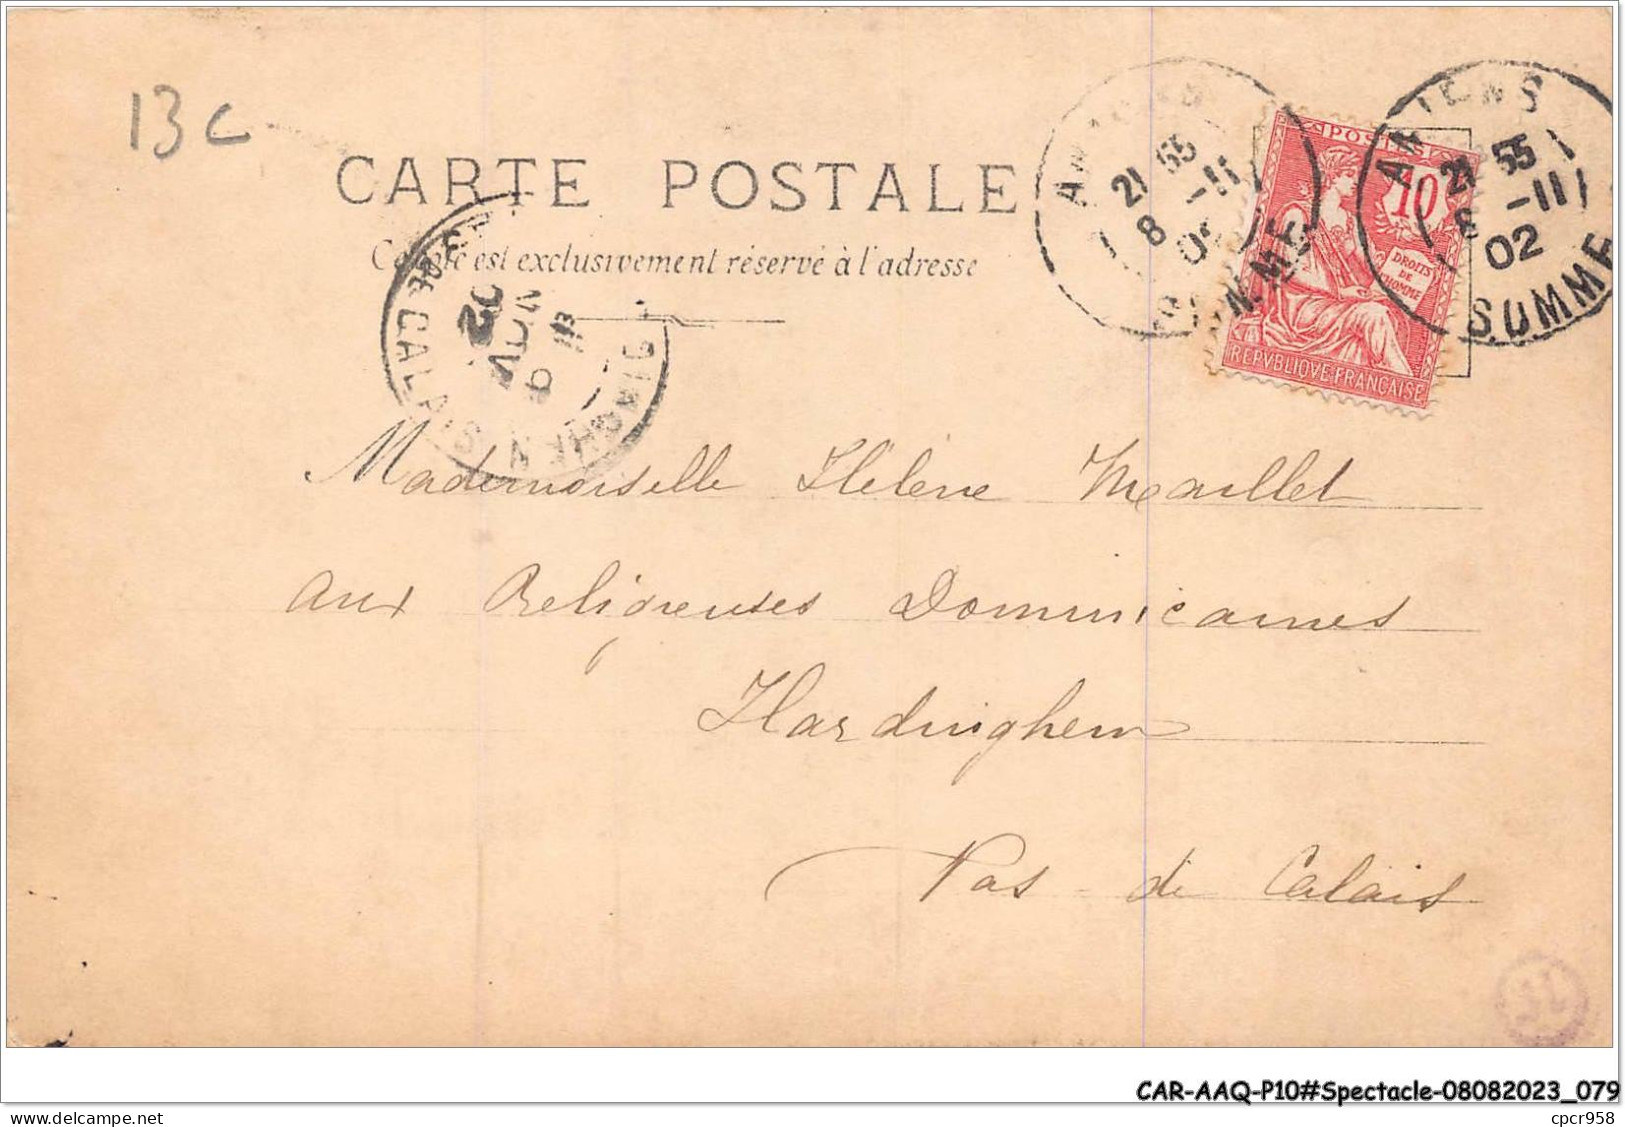 13 C
CARTE POSTALE
Ce côté est exclusivement réservé à l'adresse
AMIENS
21 55
8 -11
02
SOMME
POSTES
10
DROITS
DE
L'HOMME
REPVBLIQVE FRANÇAISE
AMIENS
21 55
8 -11
02
SOMME
PAS DE CALAIS
9
NOV
02
Mademoiselle Hélène Maillet
aux Religieuses Dominicaines
Hardinghem
Pas-de Calais
CAR-AAQ-P10#Spectacle-08082023_079
www.delcampe.net
cpcr958